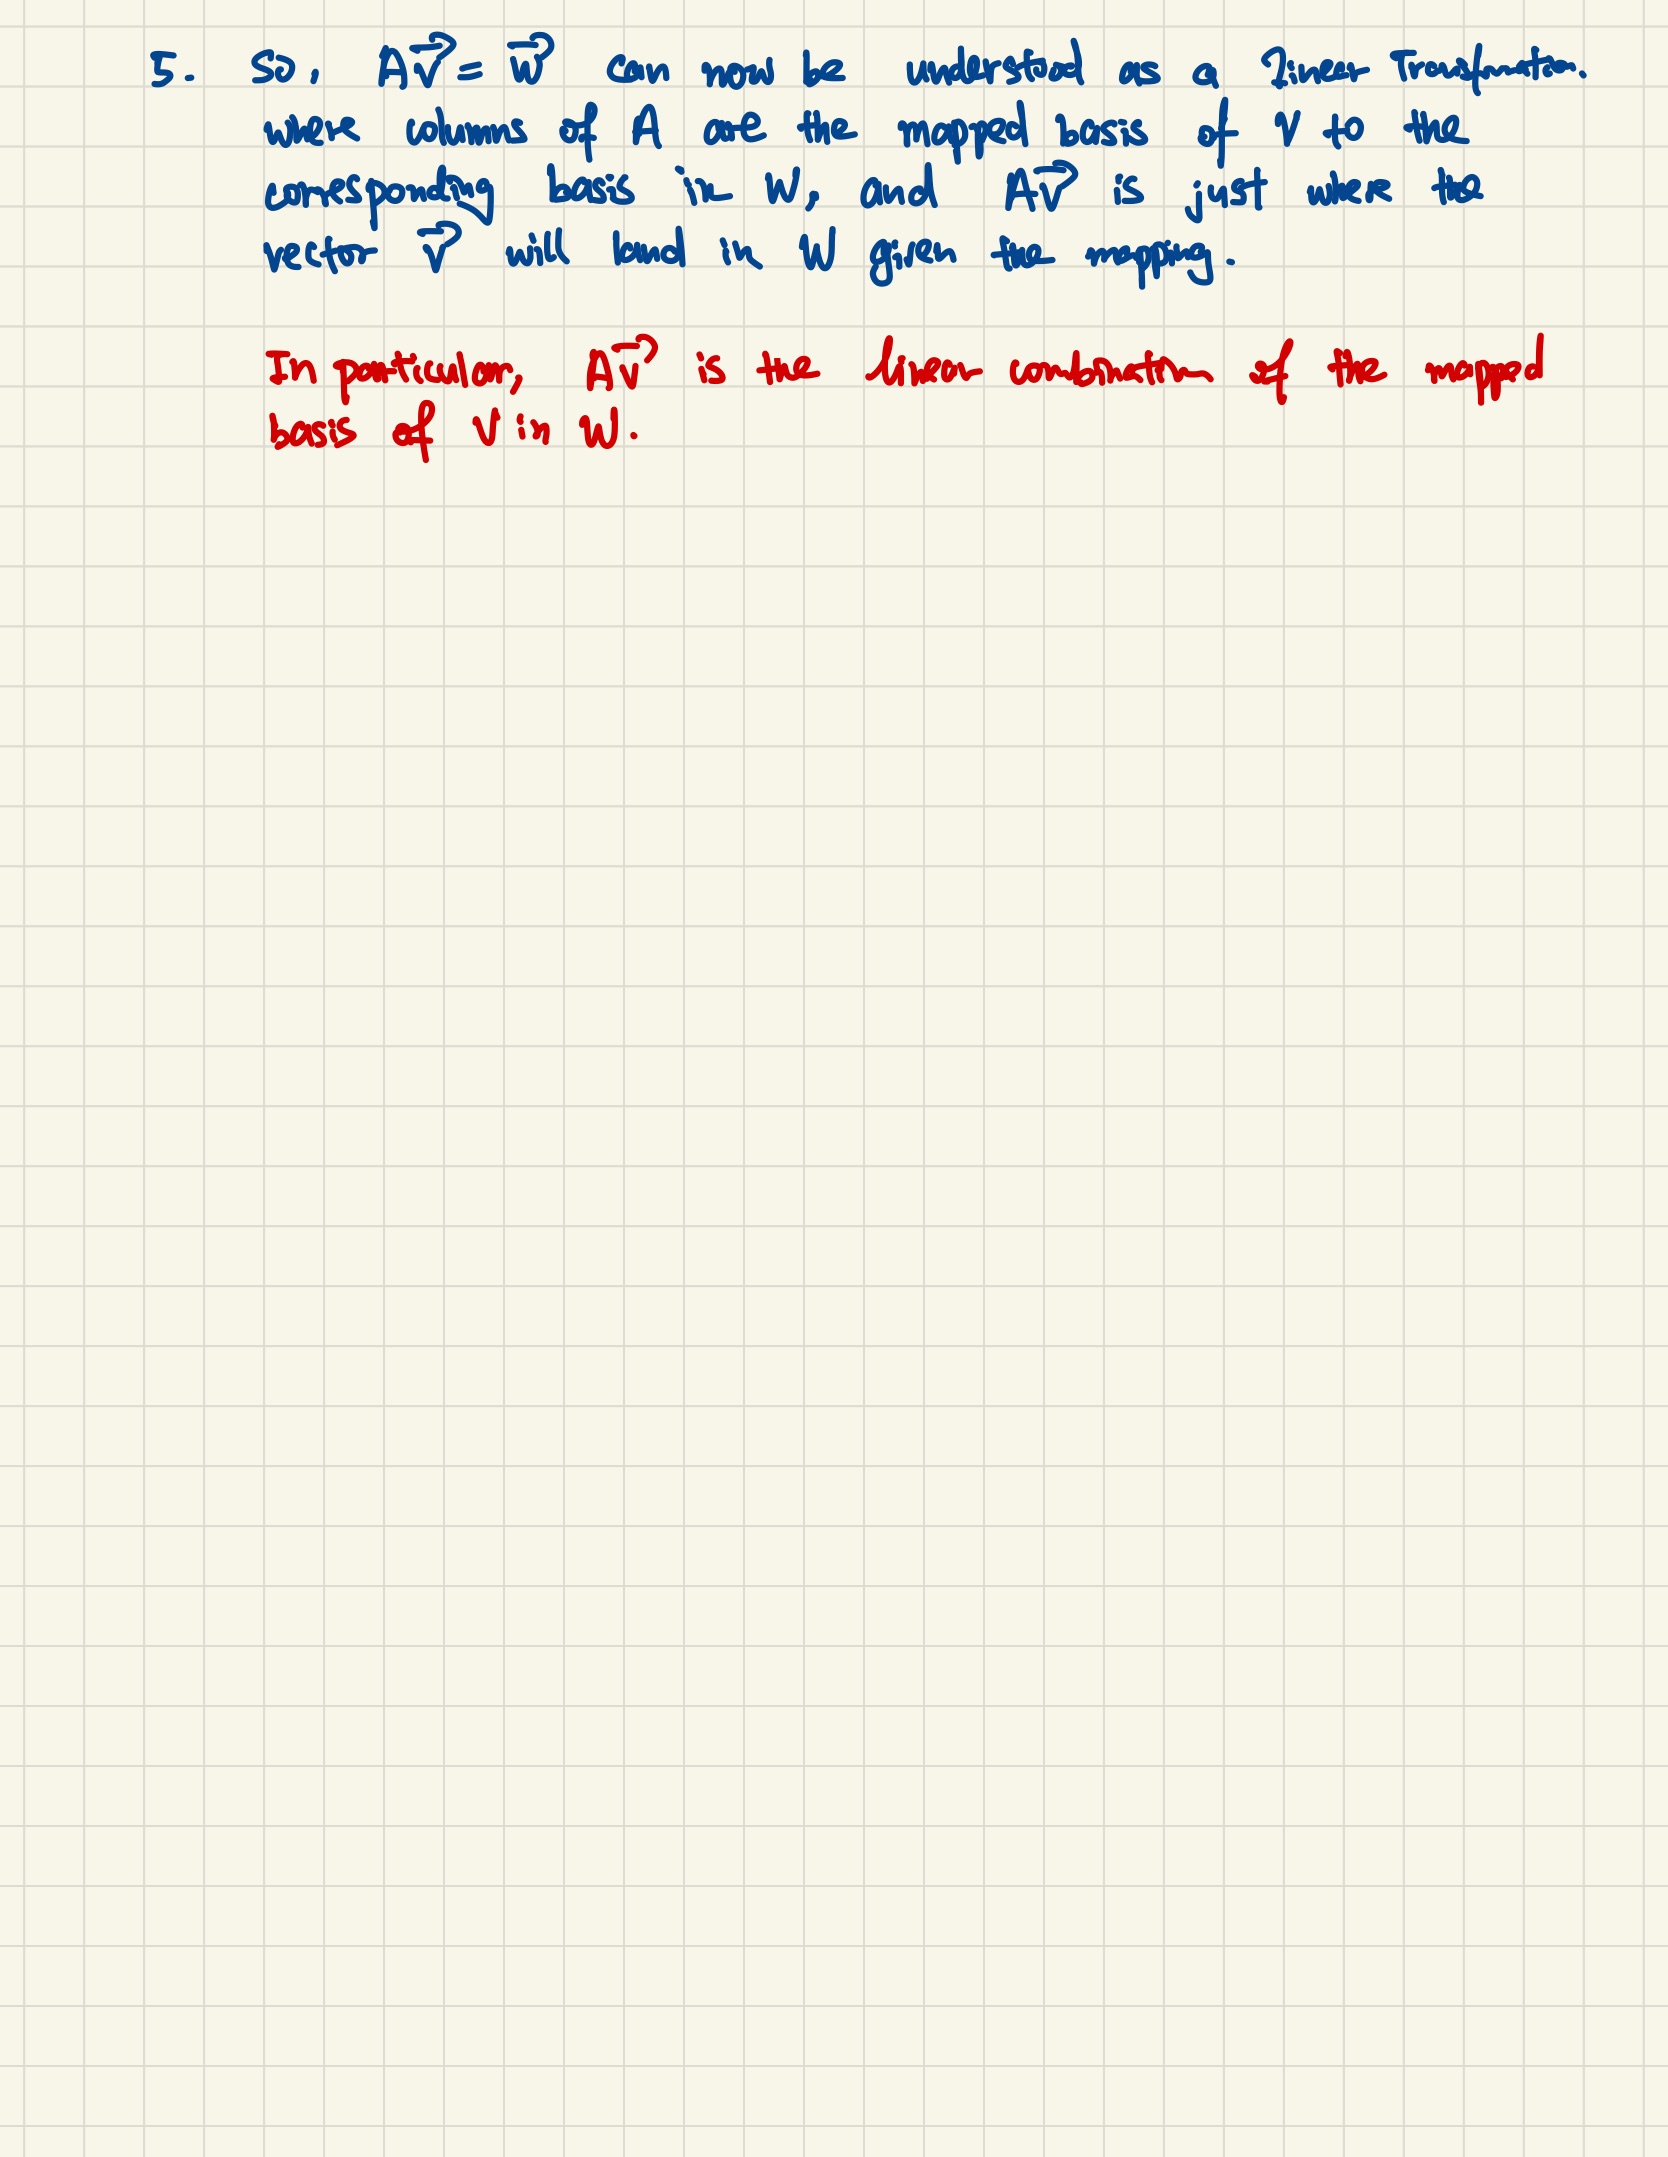 5. So, A\vec{v} = \vec{w} can now be understood as a Linear Transformation.
where columns of A are the mapped basis of V to the
corresponding basis in W, and A\vec{v} is just where the
vector \vec{v} will land in W given the mapping.
In particular, A\vec{v} is the linear combination of the mapped
basis of V in W.